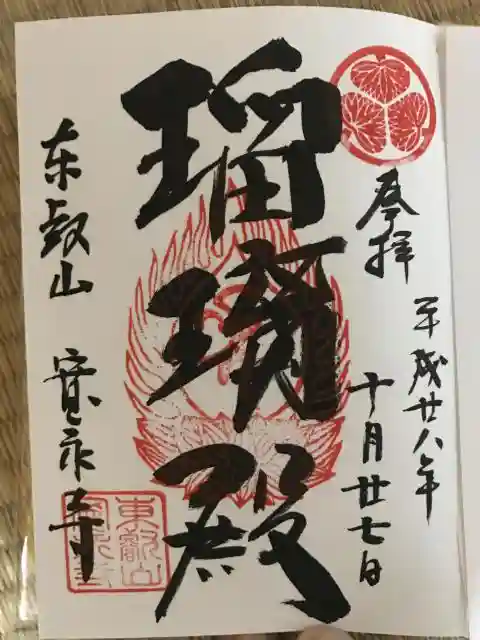 奉拝
平成廿八年
十月廿七日
瑠璃殿
東叡山 寛永寺
東叡山
寛永寺